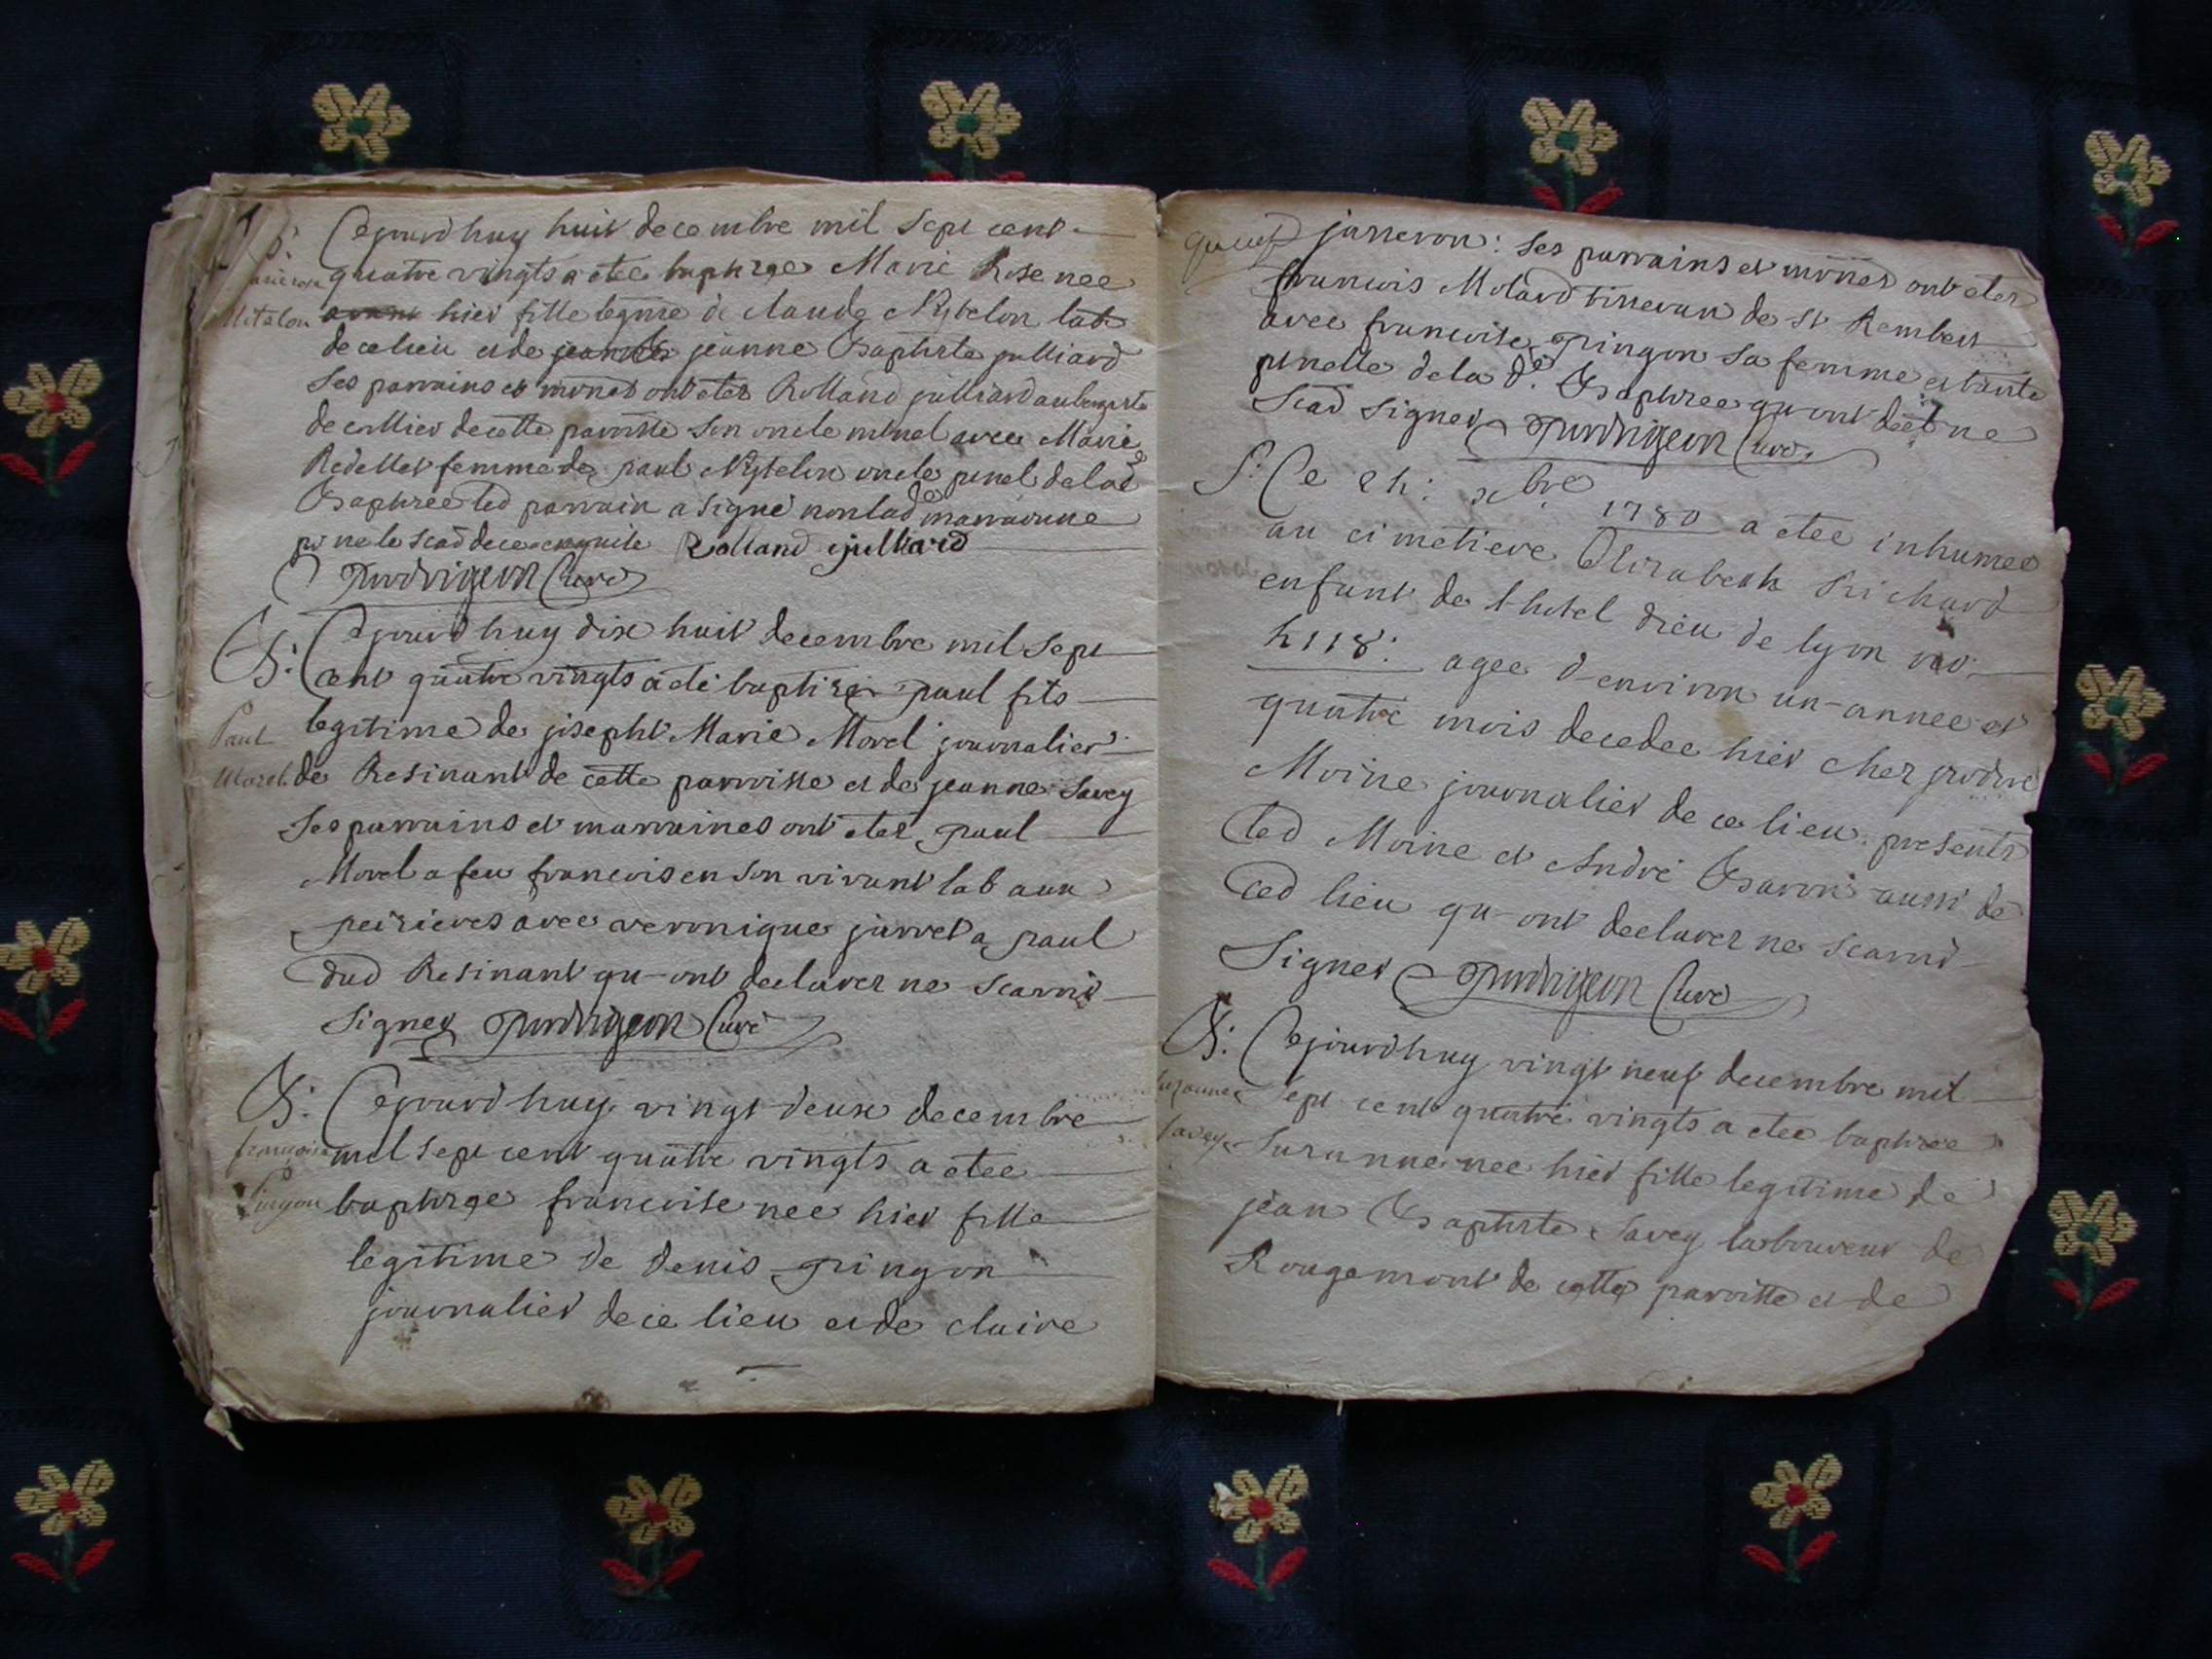 B: Cejourdhuy huit decembre mil sept cent
quatre vingts a etee baptizee Marie Rose nee
hier fille legitime de claude Nytelon lab
de ce lieu et de jeanne Baptiste julliard
Ses parrains et ont etez Rolland julliard aubergiste
de collier de cette parroisse son oncle avec Marie
femme de paul Nytelon oncle de lad
Baptizee led parrain a signé non lad marrainne
pr ne le scad de ce enquise Rolland julliard
Curé
B: Cejourdhuy dix huit decembre mil sept
Cent quatre vingts a eté baptizé paul fils
Paul
legitime de joseph Marie Morel journalier
Morel
de Resinant de cette parroisse et de jeanne Savey
Ses parrains et marraines ont etez paul
Morel a feu francois en son vivant lab aux
peirieres avec veronique jarret a paul
dud Resinant qu-ont declarer ne scavoir
Signer Curé
B: Cejourdhuy vingt deux decembre
francoise
mil sept cent quatre vingts a etee
Pingon
baptizee francoise nee hier fille
legitime de denis pingon
journalier de ce lieu et de claire
jasseron: Ses parrains et ont etez
francois Molard tisseran de St Rembert
avec francoise pingon sa femme et tante
de la de. Baptizee qu ont ne
Scad signer Curé
S: Ce 24: xbre 1780 a etee inhumee
au cimetiere Elizabeth Richard
enfant de l hotel dieu de lyon no:
4118: agee d-environ un-annee et
quatre mois decedee hier chez
Moine journalier de ce lieu. presents
led Moine et André Baron aussi de
ced lieu qu-ont declarer ne scavoir
Signer Curé
B: Cejourdhuy vingt neuf decembre mil
Suzanne
Sept cent quatre vingts a etee baptizee
Savey
Suzanne nee hier fille legitime de
jean Baptiste Savey laboureur de
Rougemont de cette parroisse et de